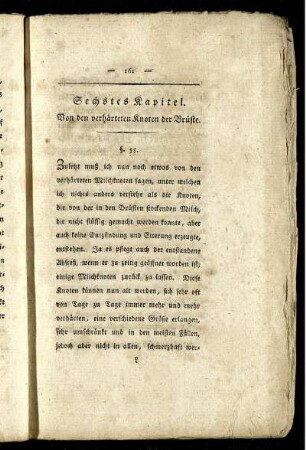 — 161 —
Sechstes Kapitel.
Von den verhärteten Knoten der Brüste.
§. 55.
Zuletzt muß ich nun noch etwas von den
verhärteten Milchknoten sagen, unter welchen
ich nichts anders verstehe als die Knoten,
die von der in den Brüsten stockenden Milch,
die nicht flüssig gemacht werden konnte, aber
auch keine Entzündung und Eiterung erzeugte,
entstehen. Ja es pflegt auch der entstandene
Absceß, wenn er zu zeitig geöffnet worden ist,
einige Milchknoten zurück zu lassen. Diese
Knoten können nun alt werden, sich sehr oft
von Tage zu Tage immer mehr und mehr
verhärten, eine verschiedene Größe erlangen,
sehr umschränkt und in den meisten Fällen,
jedoch aber nicht in allen, schmerzhaft wer-
L